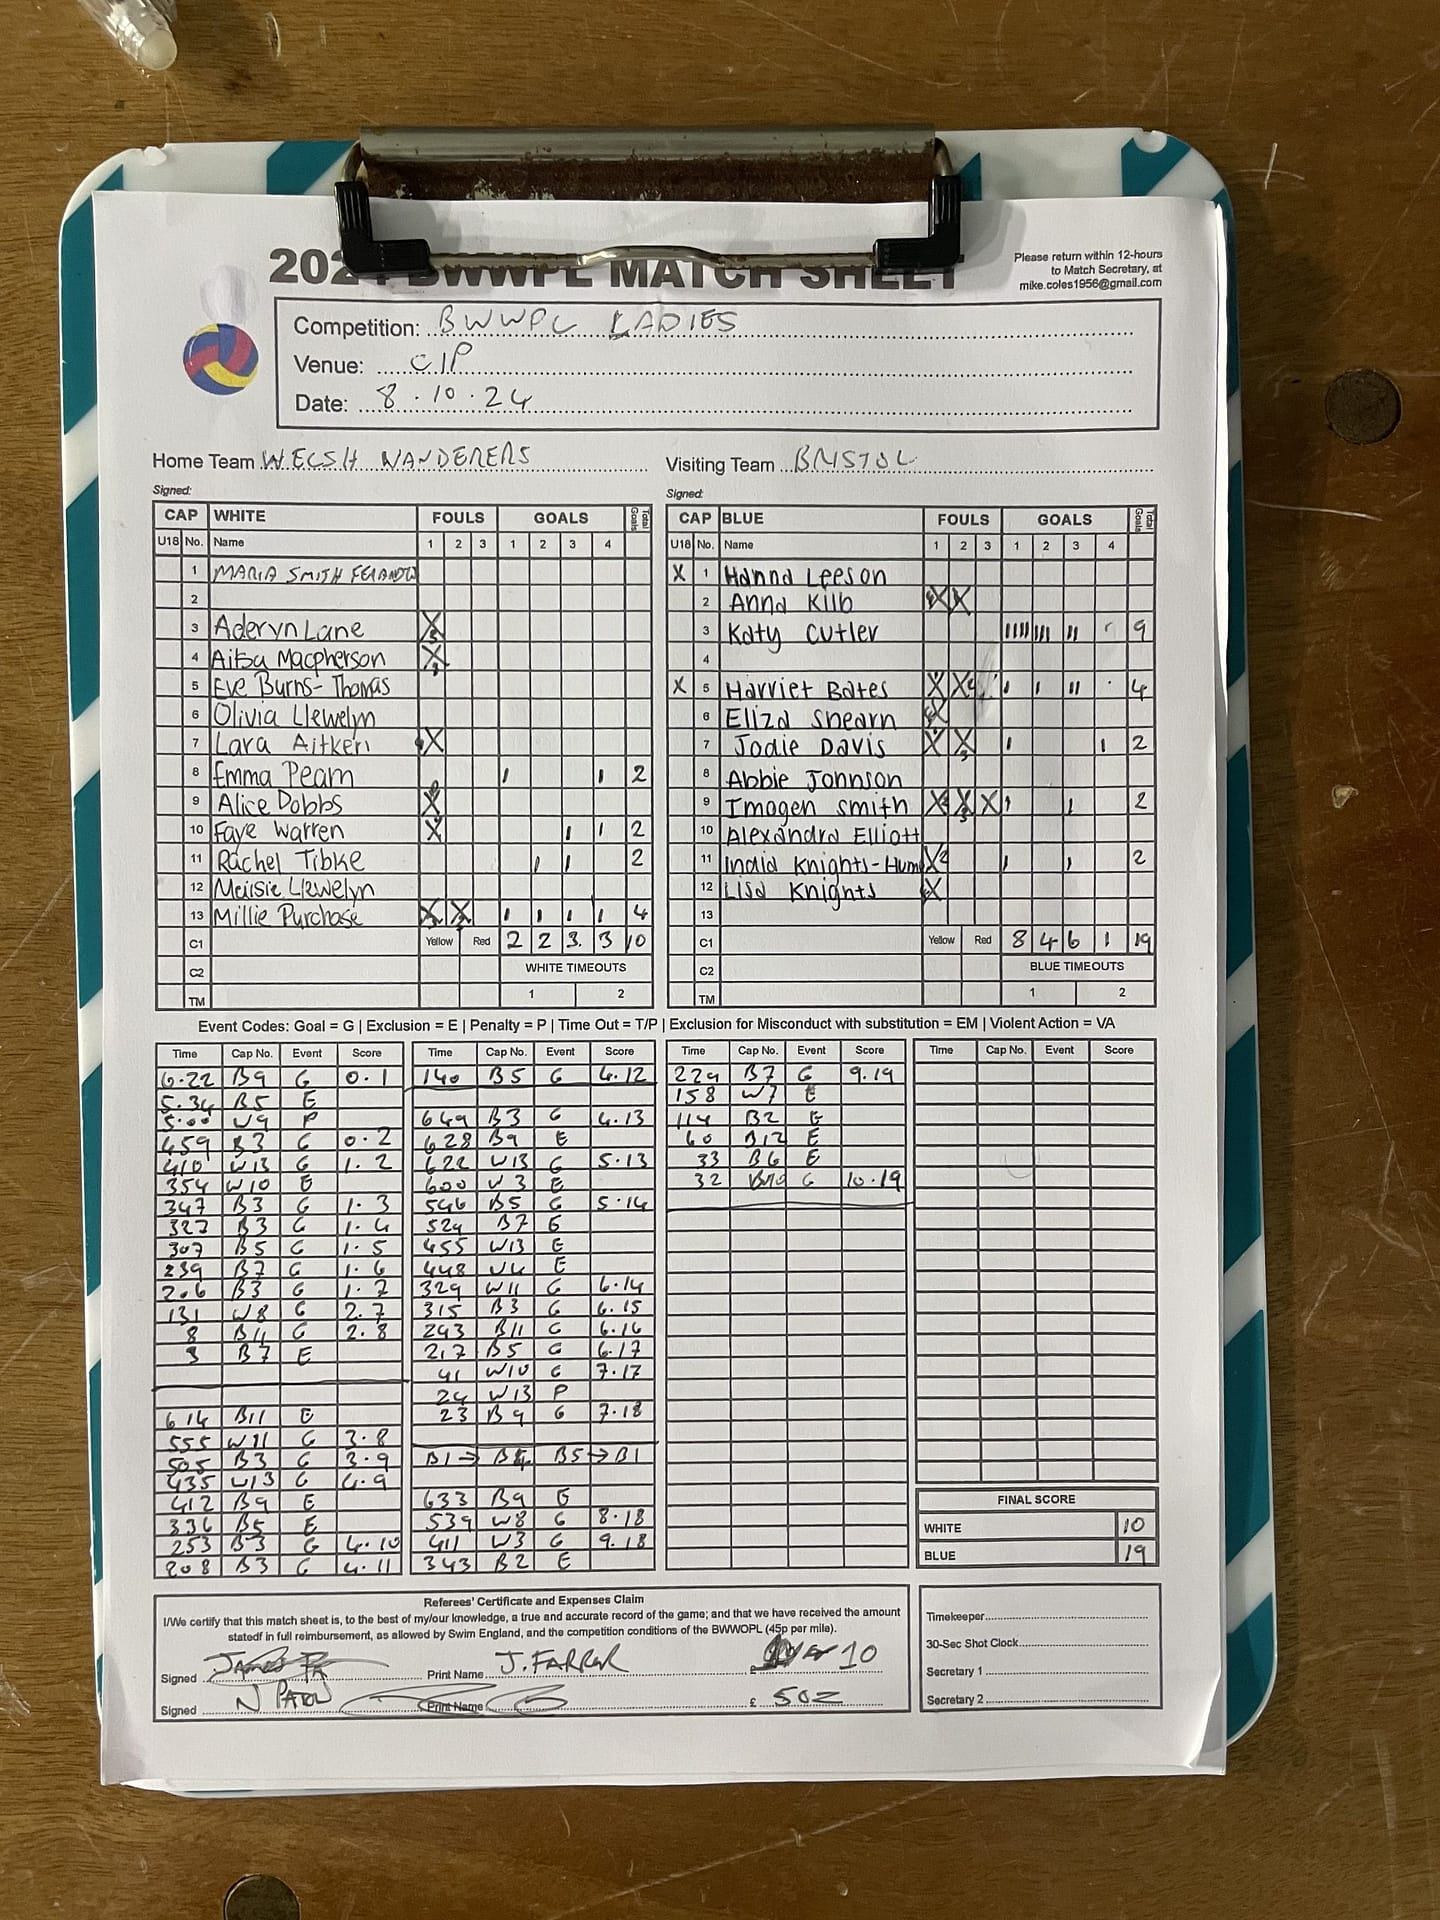 MATCH SHEET
Please return within 12-hours
to Match Secretary, at
mike.coles1956@gmail.com
Competition: BWWPL LADIES
Venue: CIP
Date: 8.10.24
Home Team WELSH WANDERERS
Visiting Team BRISTOL
Signed:
Signed:
CAP WHITE FOULS GOALS Total Goals
U18 No. Name 1 2 3 1 2 3 4
1 MARIA SMITH
2
3 Aderyn Lane X
4 Macpherson X
5 Eve Burns-Thomas
6 Olivia Llewelyn
7 Lara Aitken X
8 Emma Pearn 1 1 2
9 Alice Dobbs X
10 Faye Warren X 1 1 2
11 Rachel Tibke 1 1 2
12 Maisie Llewelyn
13 Millie Purchase X X 1 1 1 1 4
C1 Yellow Red 2 2 3. 3 10
C2 WHITE TIMEOUTS
TM 1 2
CAP BLUE FOULS GOALS Total Goals
U18 No. Name 1 2 3 1 2 3 4
X 1 Hanna Leeson
2 Anna Kilb X X
3 Katy Cutler 9
4
X 5 Harriet Bates X X 1 1 11 4
6 Eliza Shearn X
7 Jodie Davis X X 1 1 2
8 Abbie Johnson
9 Imogen Smith X X X 1 1 2
10 Alexandra Elliott
11 India Knights-Hum X 1 1 2
12 Lisa Knights X
13
C1 Yellow Red 8 4 6 1 19
C2 BLUE TIMEOUTS
TM 1 2
Event Codes: Goal = G | Exclusion = E | Penalty = P | Time Out = T/P | Exclusion for Misconduct with substitution = EM | Violent Action = VA
Time Cap No. Event Score
6.22 B9 G 0.1
5.34 B5 E
5.00 W9 P
459 B3 G 0.2
410 W13 G 1.2
354 W10 E
347 B3 G 1.3
327 B3 G 1.4
307 B5 G 1.5
239 B7 G 1.6
206 B3 G 1.7
131 W8 G 2.7
8 B11 G 2.8
3 B7 E
614 B11 E
555 W11 G 3.8
505 B3 G 3.9
435 W13 G 4.9
412 B9 E
336 B5 E
253 B3 G 4.10
208 B3 G 4.11
Time Cap No. Event Score
140 B5 G 4.12
649 B3 G 4.13
628 B9 E
622 W13 G 5.13
600 W3 E
546 B5 G 5.14
524 B7 E
455 W13 E
448 W4 E
329 W11 G 6.14
315 B3 G 6.15
243 B11 G 6.16
217 B5 G 6.17
41 W10 G 7.17
24 W13 P
23 B9 G 7.18
B1 → B5 B5 → B1
633 B9 E
539 W8 G 8.18
411 W3 G 9.18
343 B2 E
Time Cap No. Event Score
229 B7 G 9.19
158 W7 E
114 B2 E
60 B12 E
33 B6 E
32 G 10.19
Time Cap No. Event Score
FINAL SCORE
WHITE 10
BLUE 19
Referees' Certificate and Expenses Claim
I/We certify that this match sheet is, to the best of my/our knowledge, a true and accurate record of the game; and that we have received the amount
statedf in full reimbursement, as allowed by Swim England, and the competition conditions of the BWWOPL (45p per mile).
Signed Print Name J. FARRER £ 10
Signed Print Name £ 502
Timekeeper
30-Sec Shot Clock
Secretary 1
Secretary 2